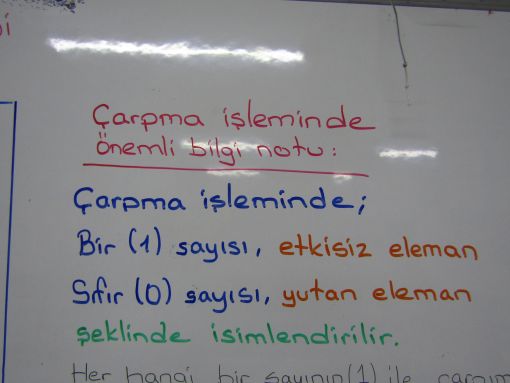 Çarpma işleminde
önemli bilgi notu:
Çarpma işleminde;
Bir (1) sayısı, etkisiz eleman
Sıfır (0) sayısı, yutan eleman
şeklinde isimlendirilir.
Her hangi bir sayının (1) ile